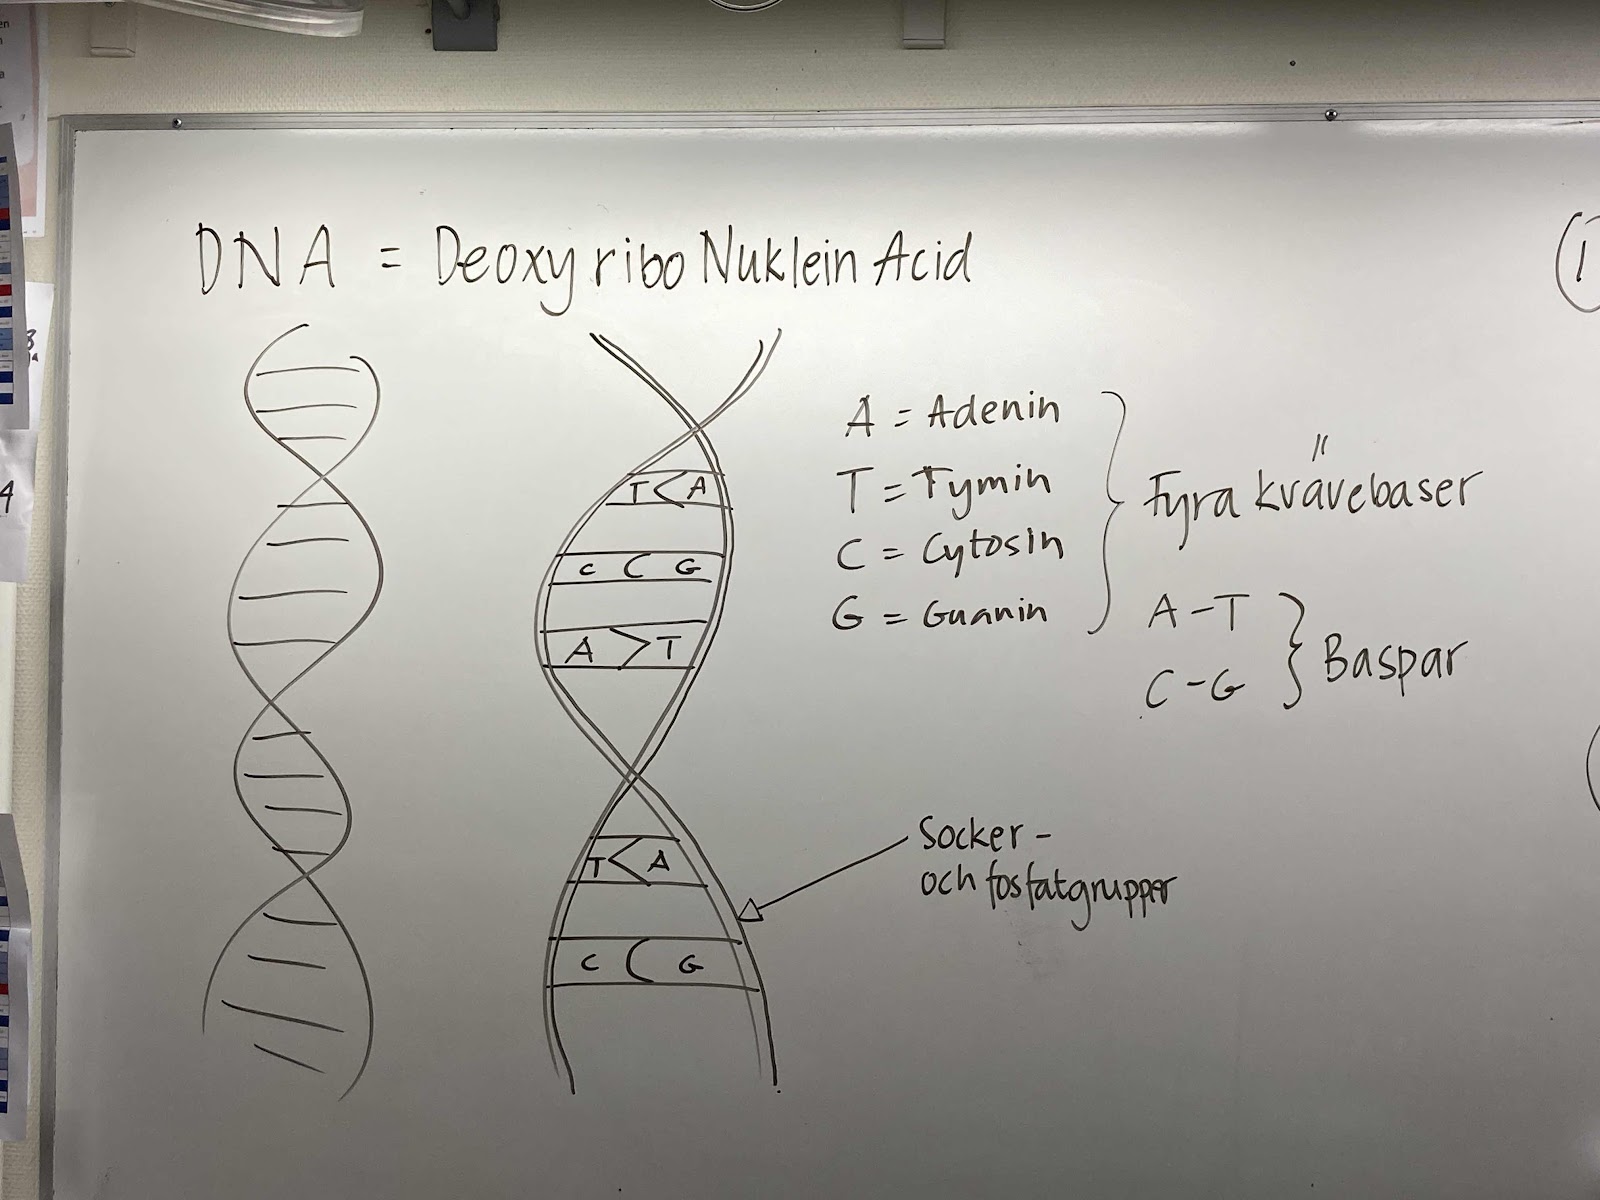 DNA = Deoxyribo Nuklein Acid
A = Adenin
T = Tymin
C = Cytosin
G = Guanin
Fyra kvävebaser
A-T
C-G
Baspar
T A
C G
A T
T A
C G
Socker-
och fosfatgrupper
1